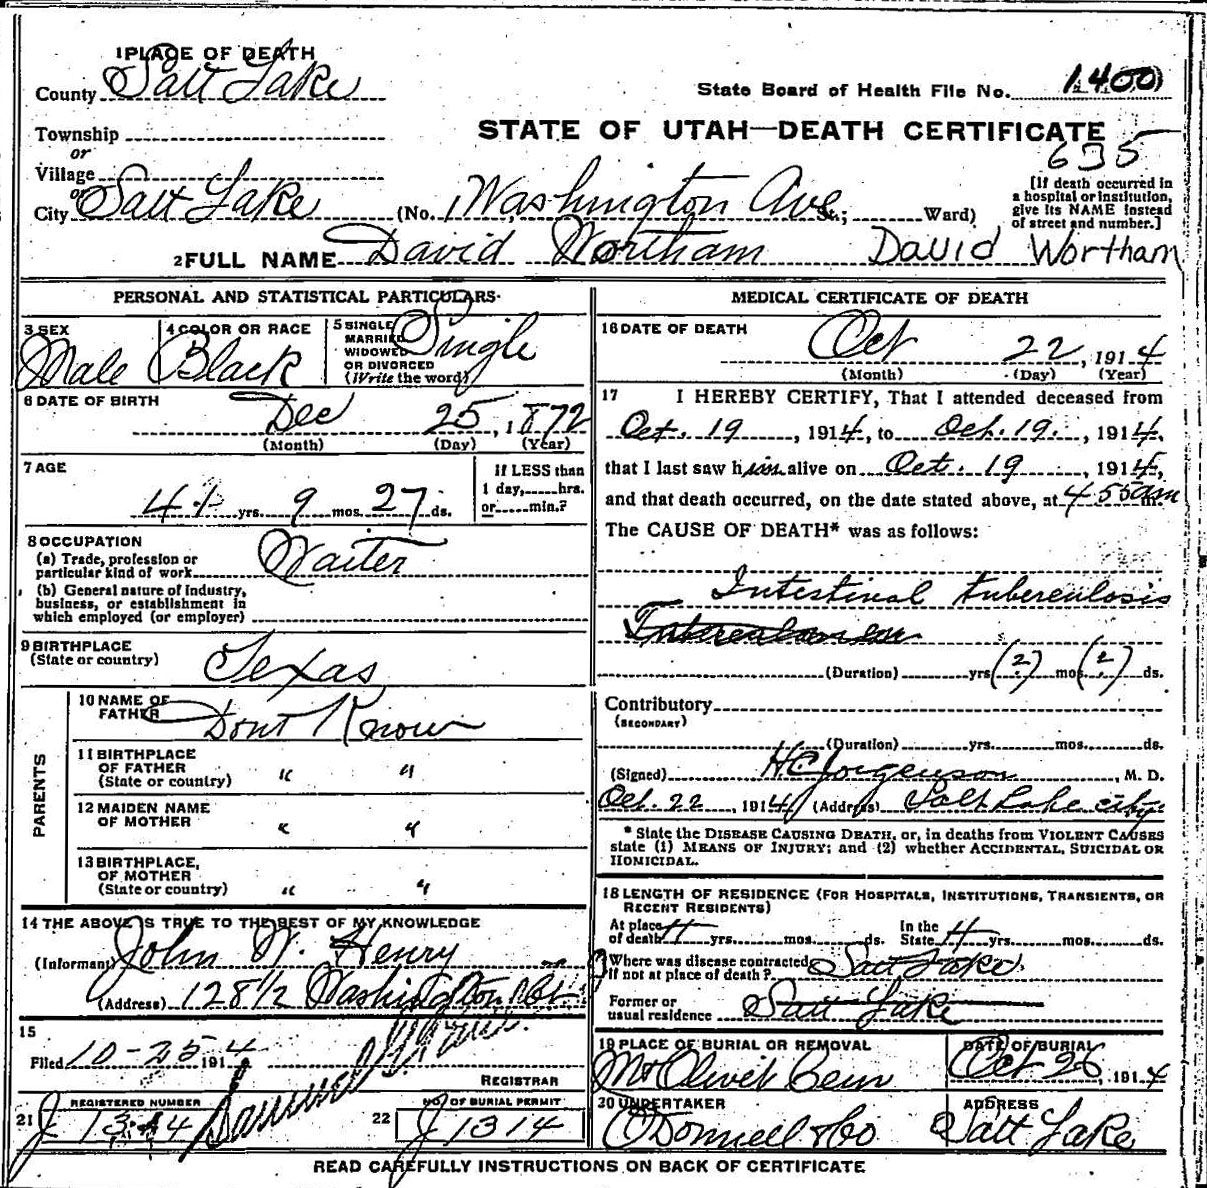 1 PLACE OF DEATH
County Salt Lake
State Board of Health File No. 1400
Township
STATE OF UTAH—DEATH CERTIFICATE
or
635
Village
or
City Salt Lake (No. 1 Washington Ave St.; Ward)
[If death occurred in a hospital or institution, give its NAME instead of street and number.]
2 FULL NAME David Wortham David Wortham
PERSONAL AND STATISTICAL PARTICULARS
3 SEX Male
4 COLOR OR RACE Black
5 SINGLE MARRIED WIDOWED OR DIVORCED (Write the word) Single
6 DATE OF BIRTH
Dec 25, 1872
(Month) (Day) (Year)
7 AGE
41 yrs 9 mos 27 ds.
If LESS than
1 day, hrs.
or min.?
8 OCCUPATION
(a) Trade, profession or
particular kind of work Waiter
(b) General nature of Industry,
business, or establishment in
which employed (or employer)
9 BIRTHPLACE
(State or country) Texas
PARENTS
10 NAME OF
FATHER Dont Know
11 BIRTHPLACE
OF FATHER
(State or country) " "
12 MAIDEN NAME
OF MOTHER " "
13 BIRTHPLACE,
OF MOTHER
(State or country) " "
14 THE ABOVE IS TRUE TO THE BEST OF MY KNOWLEDGE
(Informant) John W. Henry
(Address) 128 1/2 Washington
15
Filed 10-25 1914
Samuel G.
REGISTRAR
21 REGISTERED NUMBER
J 1314
22 NO. OF BURIAL PERMIT
J 1314
MEDICAL CERTIFICATE OF DEATH
16 DATE OF DEATH
Oct 22, 1914
(Month) (Day) (Year)
17 I HEREBY CERTIFY, That I attended deceased from
Oct. 19, 1914, to Oct. 19., 1914,
that I last saw him alive on Oct. 19, 1914,
and that death occurred, on the date stated above, at 4 55 am m.
The CAUSE OF DEATH* was as follows:
Intestinal tuberculosis
(Duration) yrs (?) mos (?) ds.
Contributory
(SECONDARY)
(Duration) yrs. mos. ds.
(Signed) H C Jorgenson, M. D.
Oct. 22, 1914 (Address) Salt Lake City
* State the DISEASE CAUSING DEATH, or, in deaths from VIOLENT CAUSES
state (1) MEANS OF INJURY; and (2) whether ACCIDENTAL, SUICIDAL OR
HOMICIDAL.
18 LENGTH OF RESIDENCE (FOR HOSPITALS, INSTITUTIONS, TRANSIENTS, OR
RECENT RESIDENTS)
At place of death yrs. mos. ds. In the State yrs. mos. ds.
Where was disease contracted
if not at place of death? Salt Lake
Former or
usual residence Salt Lake
19 PLACE OF BURIAL OR REMOVAL
Mt Olivet Cem
DATE OF BURIAL
Oct 26, 1914
20 UNDERTAKER
O'Donnell & Co
ADDRESS
Salt Lake
READ CAREFULLY INSTRUCTIONS ON BACK OF CERTIFICATE